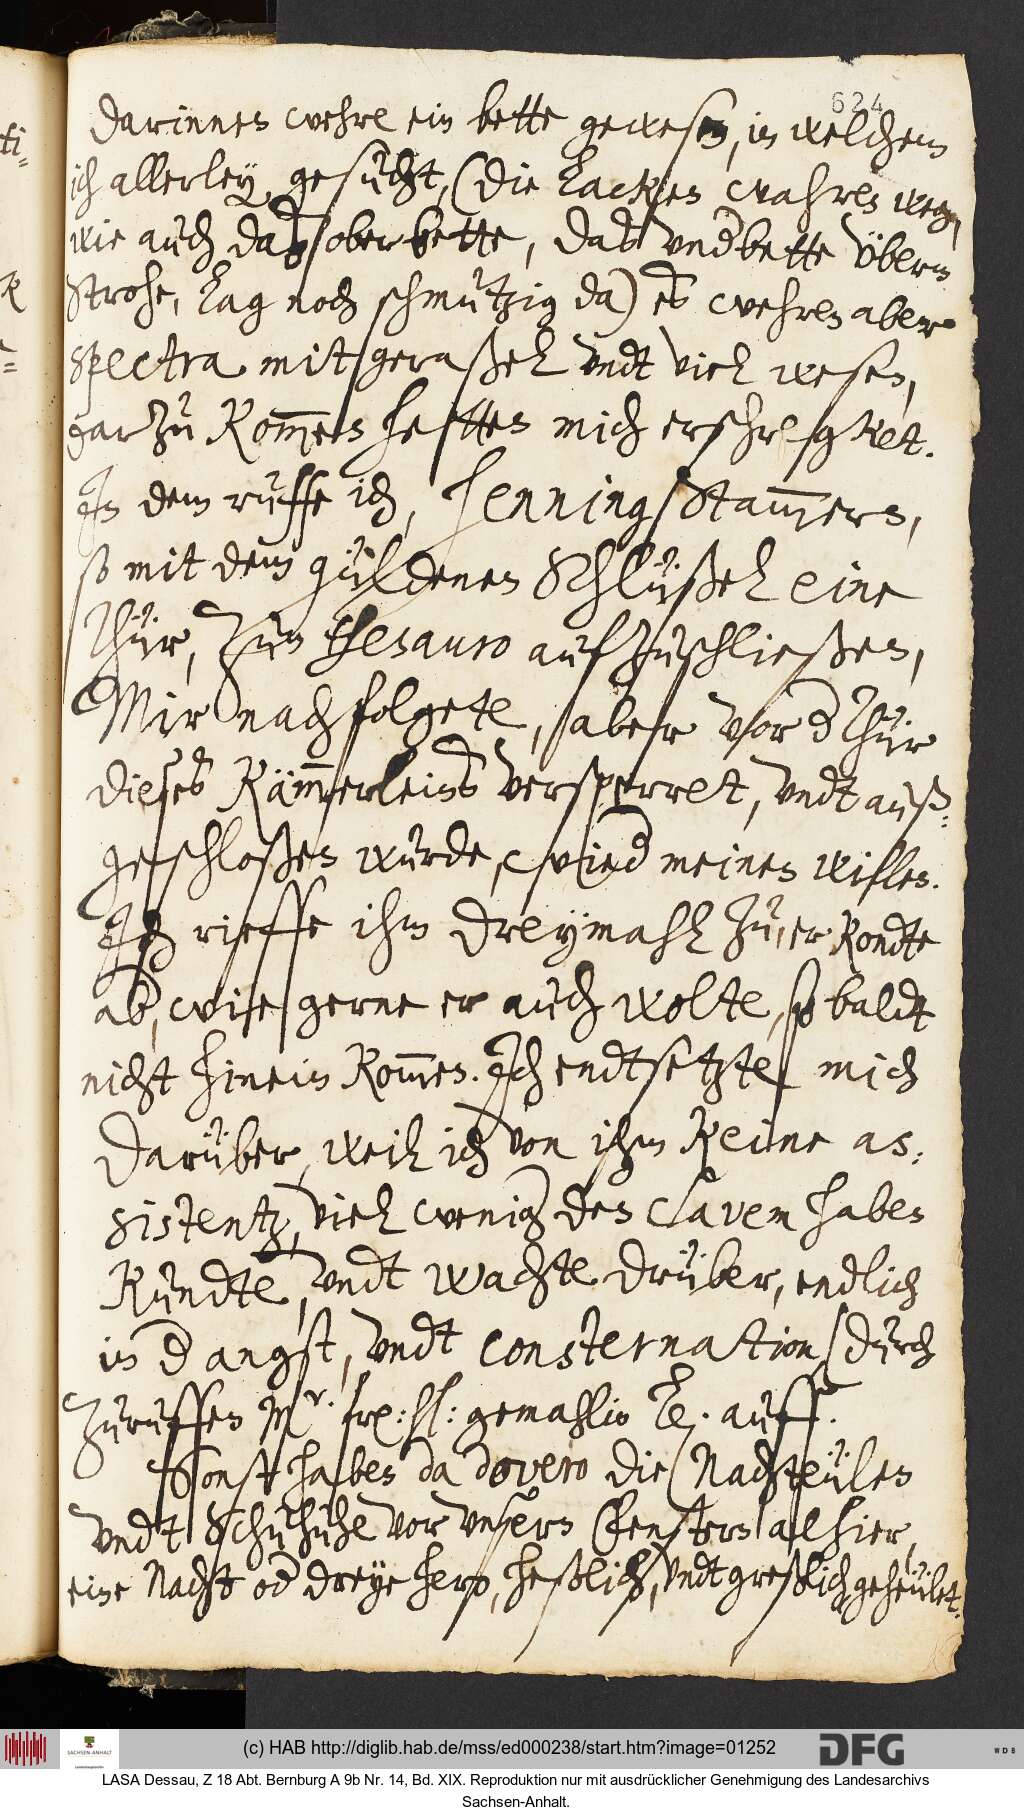 624
darinnen wehre ein bette gewesen, in welchem
ich allerley gesucht, (die Lacken wahren weg,
wie auch daß oberbette, daß undbette übern
Strohe, lag noch schmutzig da) es wehren aber
spectra mit geraßel undt viel wesen,
gar zu kommen hetten mich erschrecket.
In dem ruffe ich, Henning Stammern,
so mit dem güldenen Schlüßel eine
Thür, zum thesauro aufzuschließen,
Mir nachfolgete, aber vor d Thür
dieses Kämmerleins versperret, undt auß-
geschloßen wurde, wied meinen willen.
Ich rieffe ihm dreymahl zu, er kondte
ab, wie gerne er auch wolte, so baldt
nicht hinein kommen. Ich endtsetzte mich
darüber, weil ich von ihm keine as-
sistentz, viel wenig den clavem haben
kundte, undt wachte drüber, endlich
in d angst, undt consternation durch
zuruffen Mr. frl: hl: gemahlin L. auff.
Sonst haben da dovero die Nachteülen
undt Schuhuhe vor unsern Fenstern alhier,
eine Nacht od dreye hero, heßlich, undt greßlich geheület.
ti-
(c) HAB http://diglib.hab.de/mss/ed000238/start.htm?image=01252
SACHSEN-ANHALT
DFG
WDB
LASA Dessau, Z 18 Abt. Bernburg A 9b Nr. 14, Bd. XIX. Reproduktion nur mit ausdrücklicher Genehmigung des Landesarchivs
Sachsen-Anhalt.